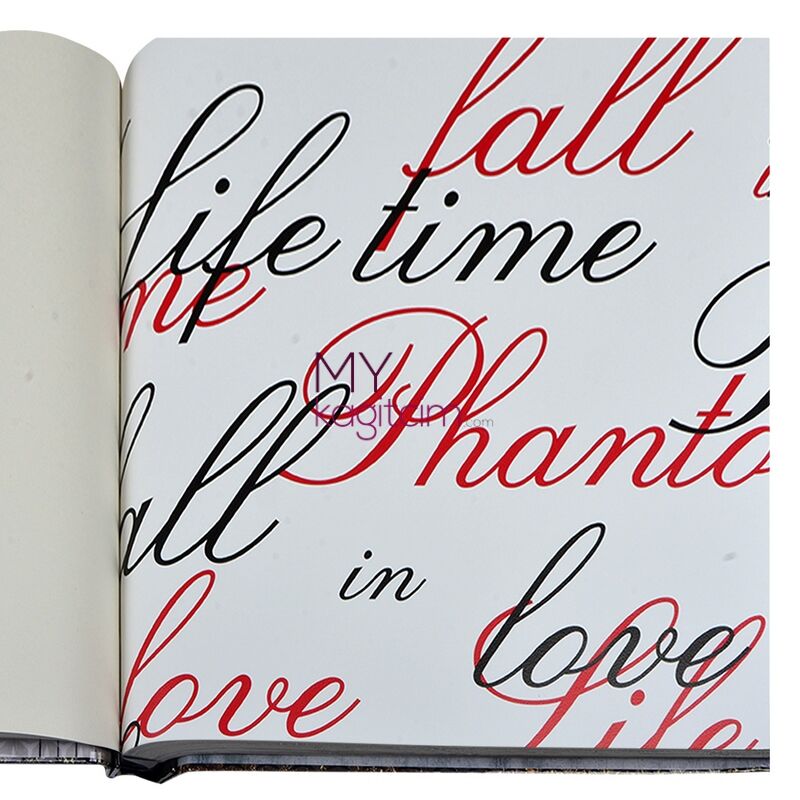 fall
life time
me
Phanto
MY
kagitam.com
all
in
love
love
life